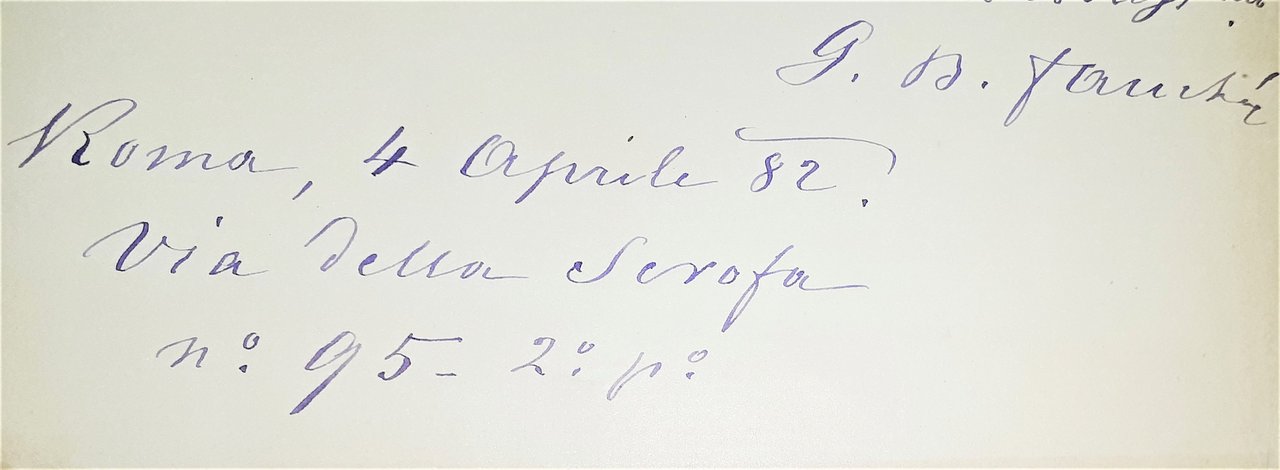 G. B. Fauché
Roma, 4 Aprile 82.
Via della Scrofa
nº. 95 - 2º. pº.